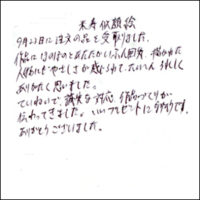 米寿似顔絵
9月23日に注文の品を受取りました。
作品はほのぼのとあたたかいふんい気 描かれた
人物にもやさしさが感じられて、たいへんうれしく
ありがたく思いました。
ていねいで、誠実な対応、作品づくりが
伝わってきました。いいプレゼントになりそうです。
ありがとうございました。